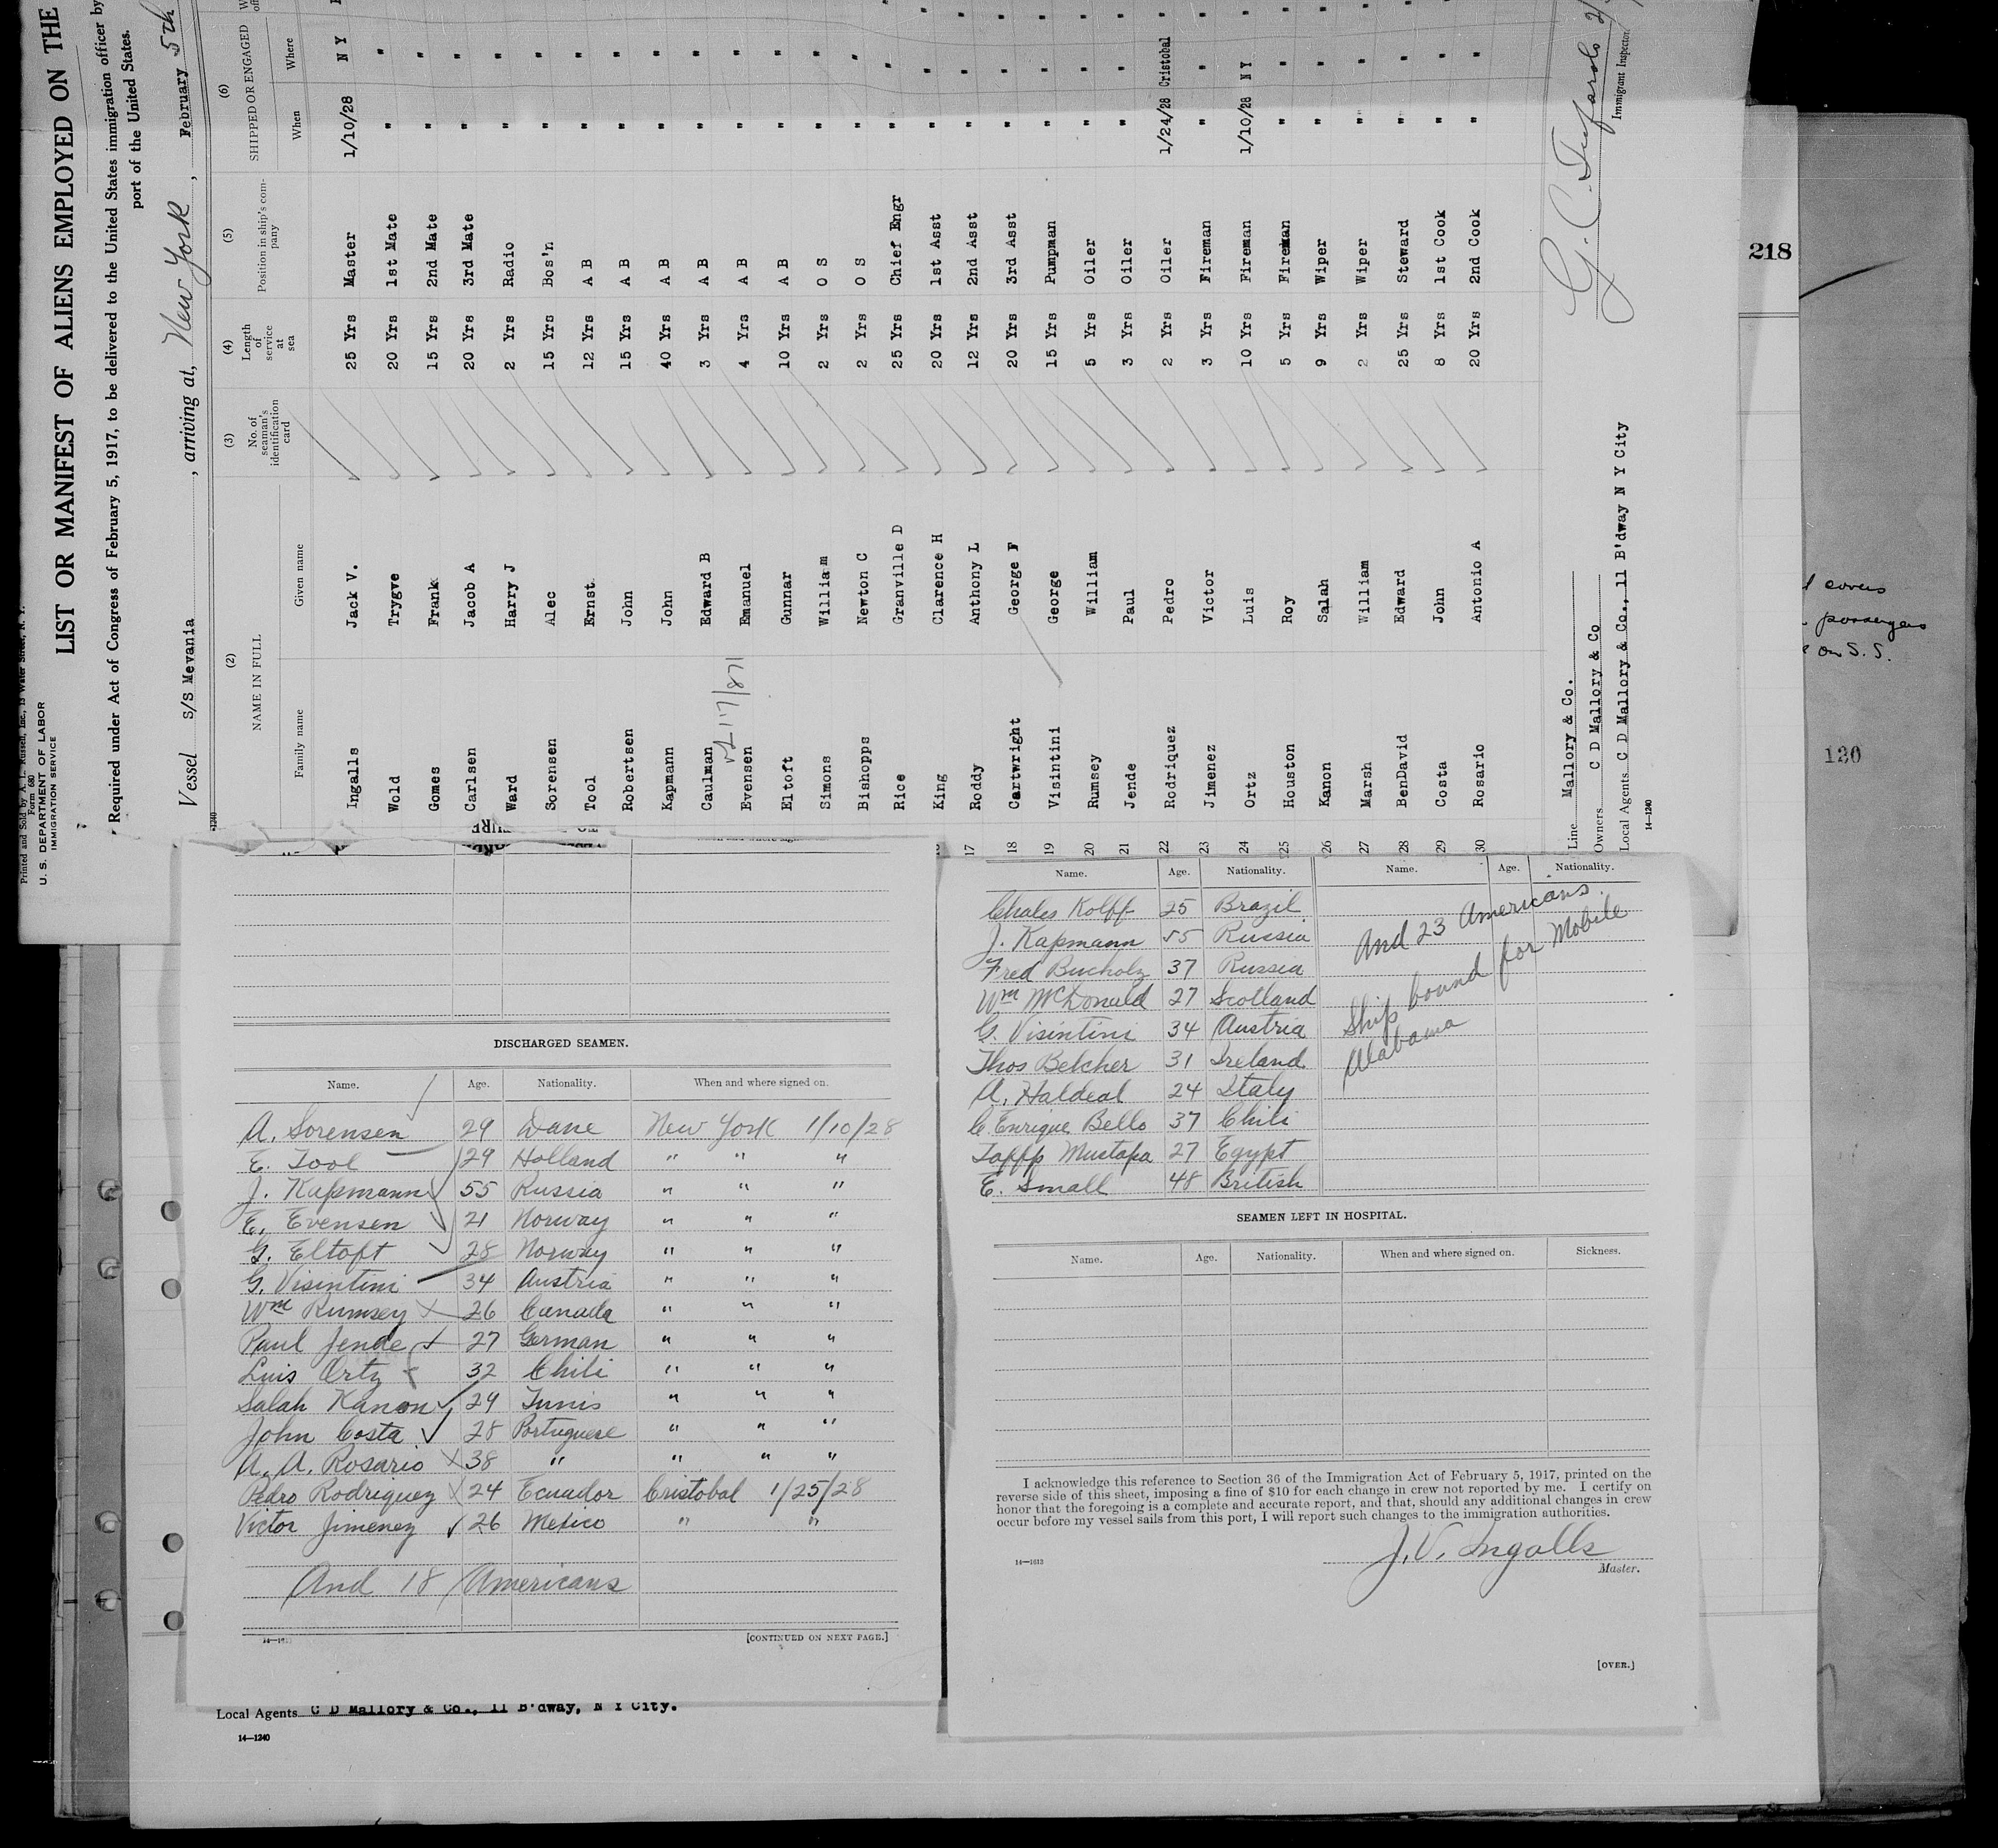 Printed and Sold by A. L. Russell, Inc., 13 Water Street, N. Y.
Form 680
U. S. DEPARTMENT OF LABOR
IMMIGRATION SERVICE
LIST OR MANIFEST OF ALIENS EMPLOYED ON THE
Required under Act of Congress of February 5, 1917, to be delivered to the United States immigration officer by
port of the United States.
Vessel S/S Mevania, arriving at, New York, February 5th
14—1240
(2) (3) (4) (5) (6)
NAME IN FULL No. of seaman's identification card Length of service at sea Position in ship's company SHIPPED OR ENGAGED
Family name Given name When Where
Ingalls Jack V. 25 Yrs Master 1/10/28 N Y
Wold Trygve 20 Yrs 1st Mate " "
Gomes Frank 15 Yrs 2nd Mate " "
Carlsen Jacob A 20 Yrs 3rd Mate " "
Ward Harry J 2 Yrs Radio " "
Sorensen Alec 15 Yrs Bos'n " "
Tool Ernst 12 Yrs A B " "
Robertsen John 15 Yrs A B " "
Kapmann John 40 Yrs A B " "
Caulman Edward B 3 Yrs A B " "
Evensen Emanuel 4 Yrs A B " "
Eltoft Gunnar 10 Yrs A B " "
Simons William 2 Yrs O S " "
Bishopps Newton C 2 Yrs O S " "
Rice Granville D 25 Yrs Chief Engr " "
King Clarence H 20 Yrs 1st Asst " "
17 Roddy Anthony L 12 Yrs 2nd Asst " "
18 Cartwright George F 20 Yrs 3rd Asst " "
19 Visintini George 15 Yrs Pumpman " "
20 Rumsey William 5 Yrs Oiler " "
21 Jende Paul 3 Yrs Oiler " "
22 Rodriquez Pedro 2 Yrs Oiler 1/24/28 Cristobal
23 Jimenez Victor 3 Yrs Fireman " "
24 Ortz Luis 10 Yrs Fireman 1/10/28 N Y
25 Houston Roy 5 Yrs Fireman " "
26 Kanon Salah 9 Yrs Wiper " "
27 Marsh William 2 Yrs Wiper " "
28 BenDavid Edward 25 Yrs Steward " "
29 Costa John 8 Yrs 1st Cook " "
30 Rosario Antonio A 20 Yrs 2nd Cook " "
Line Mallory & Co.
Owners C D Mallory & Co
Local Agents C D Mallory & Co., 11 B'dway N Y City
14—1240
Immigrant Inspector
218
covers
passengers
on S.S.
130
DISCHARGED SEAMEN.
Name. Age. Nationality. When and where signed on.
A. Sorensen 29 Dane New York 1/10/28
E. Tool 29 Holland " " "
J. Kapmann 55 Russia " " "
E. Evensen 21 Norway " " "
G. Eltoft 28 Norway " " "
G. Visintini 34 Austria " " "
Wm Rumsey 26 Canada " " "
Paul Jende 27 German " " "
Luis Ortz 32 Chili " " "
Salah Kanon 29 Tunis " " "
John Costa 28 Portuguese " " "
A. A. Rosario 38 " " " "
Pedro Rodriquez 24 Ecuador Cristobal 1/25/28
Victor Jimenez 26 Mexico " "
And 18 Americans
[CONTINUED ON NEXT PAGE.]
Local Agents C D Mallory & Co., 11 B'dway, N Y City.
14—1240
Name. Age. Nationality. Name. Age. Nationality.
Chales Kolff 25 Brazil
J. Kapmann 55 Russia
Fred Bucholz 37 Russia
Wm McDonald 27 Scotland
G. Visintini 34 Austria
Thos Belcher 31 Ireland
A. Haldeal 24 Italy
C Enrique Bello 37 Chili
Mustapa 27 Egypt
E. Small 48 British
And 23 Americans.
Ship bound for Mobile
Alabama
SEAMEN LEFT IN HOSPITAL.
Name. Age. Nationality. When and where signed on. Sickness.
I acknowledge this reference to Section 36 of the Immigration Act of February 5, 1917, printed on the
reverse side of this sheet, imposing a fine of $10 for each change in crew not reported by me. I certify on
honor that the foregoing is a complete and accurate report, and that, should any additional changes in crew
occur before my vessel sails from this port, I will report such changes to the immigration authorities.
J. V. Ingalls
Master.
14—1613
[OVER.]